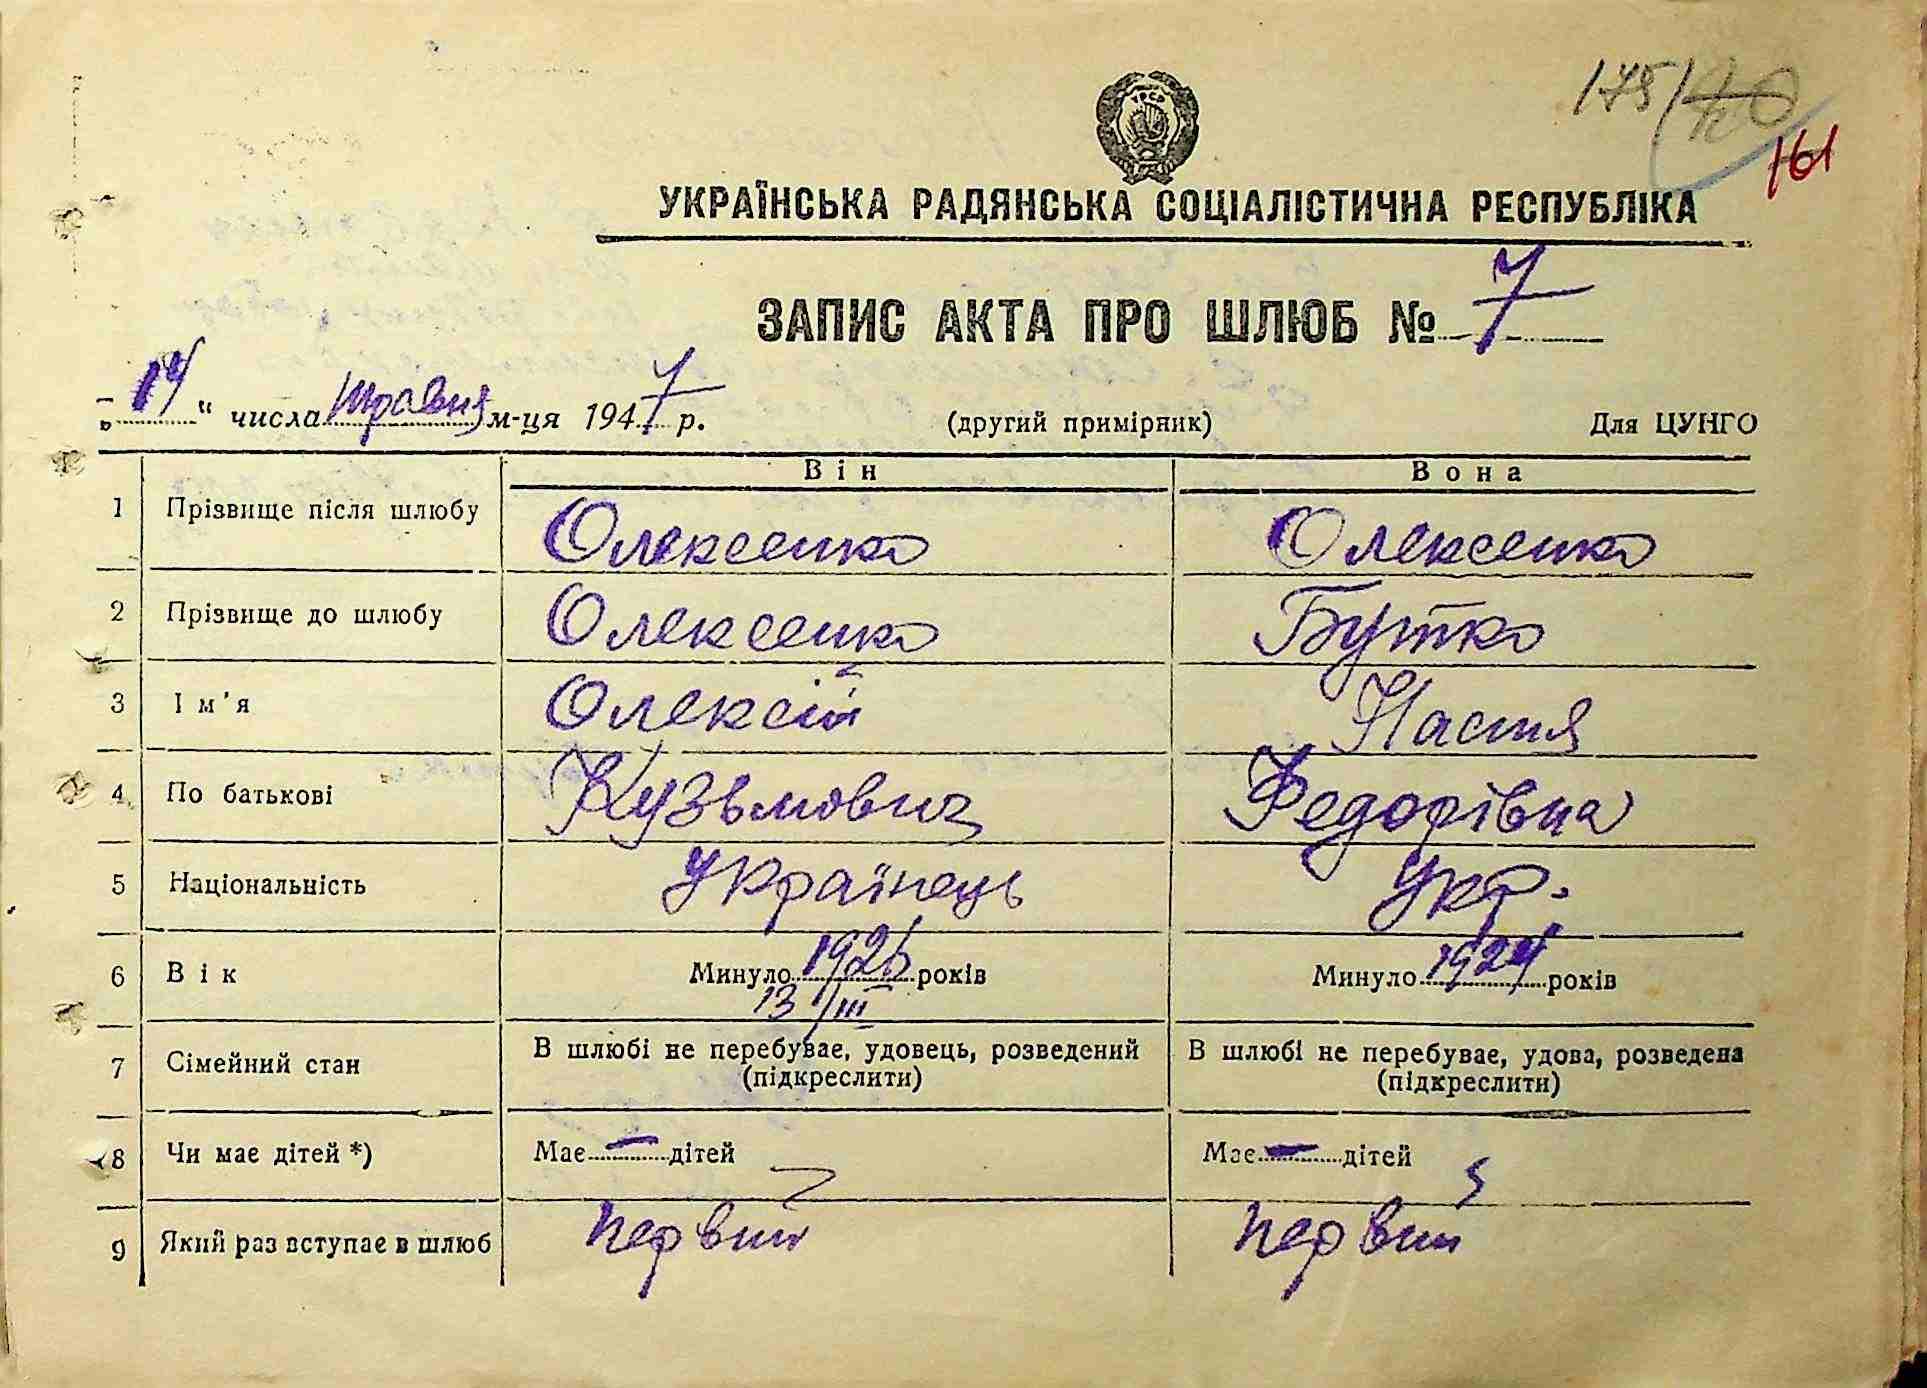 175/
161
УРСР
УКРАЇНСЬКА РАДЯНСЬКА СОЦІАЛІСТИЧНА РЕСПУБЛІКА
ЗАПИС АКТА ПРО ШЛЮБ № 7
„14“ числа травня м-ця 1947 р. (другий примірник) Для ЦУНГО
Він Вона
1 Прізвище після шлюбу Олексенко Олексенко
2 Прізвище до шлюбу Олексенко Бутко
3 Ім'я Олексій Настя
4 По батькові Кузьмович Федорівна
5 Національність Українець Укр.
6 Вік Минуло 1926 років Минуло 1924 років
13/III
7 Сімейний стан В шлюбі не перебуває, удовець, розведений В шлюбі не перебуває, удова, розведена
(підкреслити) (підкреслити)
8 Чи має дітей *) Має — дітей Має — дітей
9 Який раз вступає в шлюб первий первий